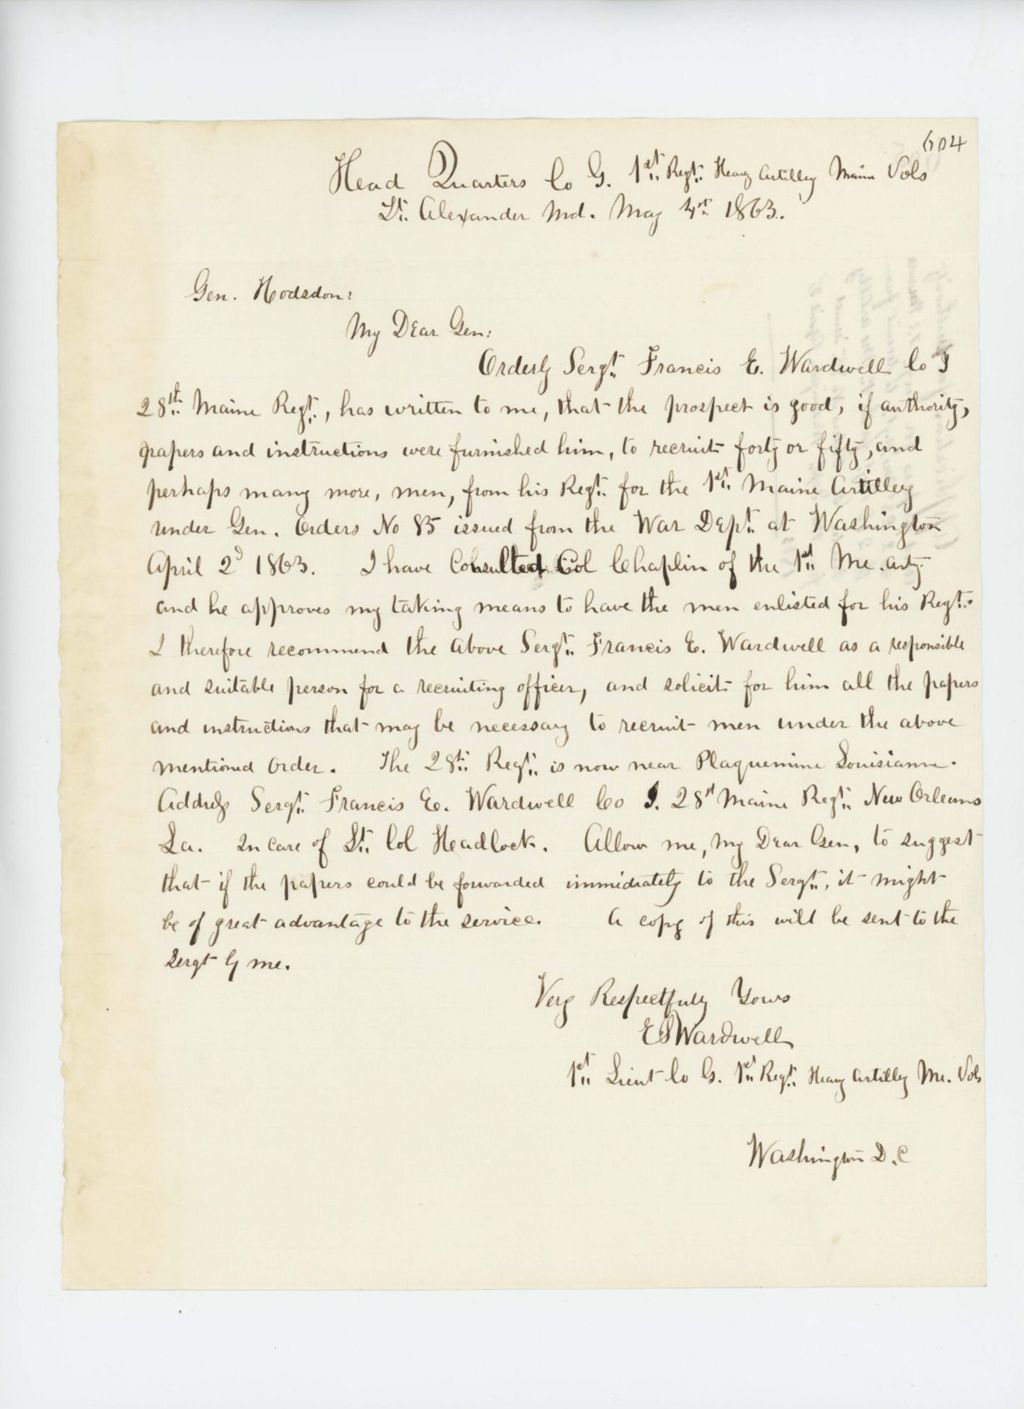 604
Head Quarters Co G. 1st Regt. Heavy Artillery Maine Vols
Ft. Alexander Md. May 4th 1863.
Gen. Hodsdon:
My Dear Gen:
Orderly Sergt. Francis E. Wardwell Co I
28th Maine Regt., has written to me, that the prospect is good, if authority,
papers and instructions were furnished him, to recruit forty or fifty, and
perhaps many more, men, from his Regt. for the 1st Maine Artillery
under Gen. Orders No 85 issued from the War Dept. at Washington
April 2d 1863. I have Consulted Col Chaplin of the 1st Me. Arty
and he approves my taking means to have the men enlisted for his Regt.
I therefore recommend the above Sergt. Francis E. Wardwell as a responsible
and suitable person for a recruiting officer, and solicit for him all the papers
and instructions that may be necessary to recruit men under the above
mentioned order. The 28th Regt. is now near Plaquemine Louisiana.
Address Sergt. Francis E. Wardwell Co I. 28th Maine Regt. New Orleans
La. In care of Lt. Col Headlock. Allow me, My Dear Gen, to suggest
that if the papers could be forwarded immidiately to the Sergt., it might
be of great advantage to the service. A copy of this will be sent to the
Sergt by me.
Very Respectfully Yours
E S Wardwell
1st Lieut Co G. 1st Regt. Heavy Artillery Me. Vols
Washington D.C